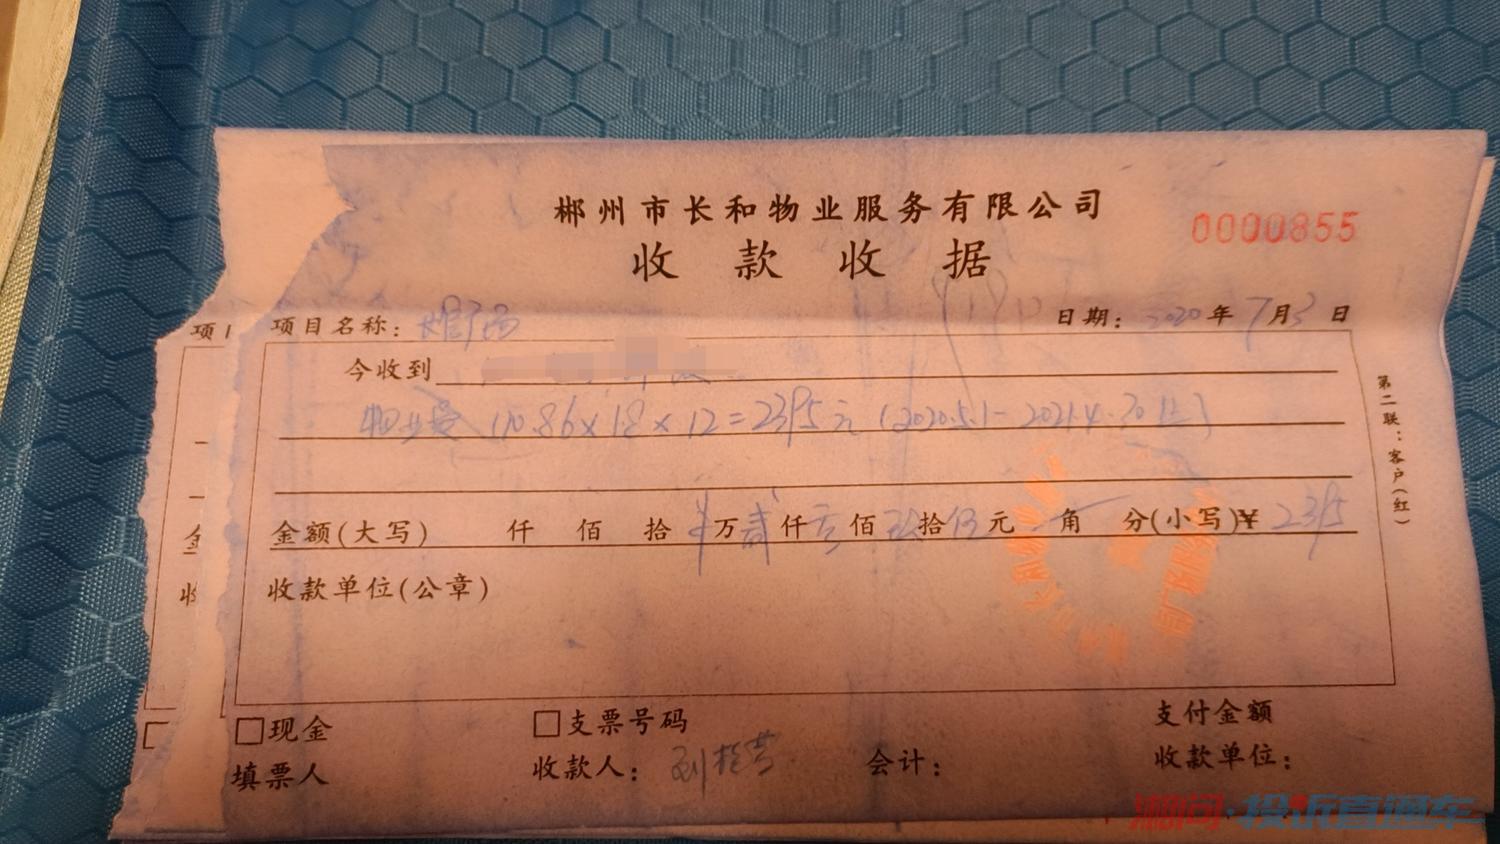 郴州市长和物业服务有限公司
0000855
收款收据
项目名称:
日期: 2020年7月3日
今收到
物业费 110.86×18×12=2395元(2020.5.1-2021.4.30止)
金额(大写) 仟 佰 拾 万贰仟 佰 拾 元 角 分(小写)¥ 2395
收款单位(公章)
第二联:客户(红)
现金
支票号码
支付金额
填票人
收款人:
会计:
收款单位:
湘问·投诉直通车